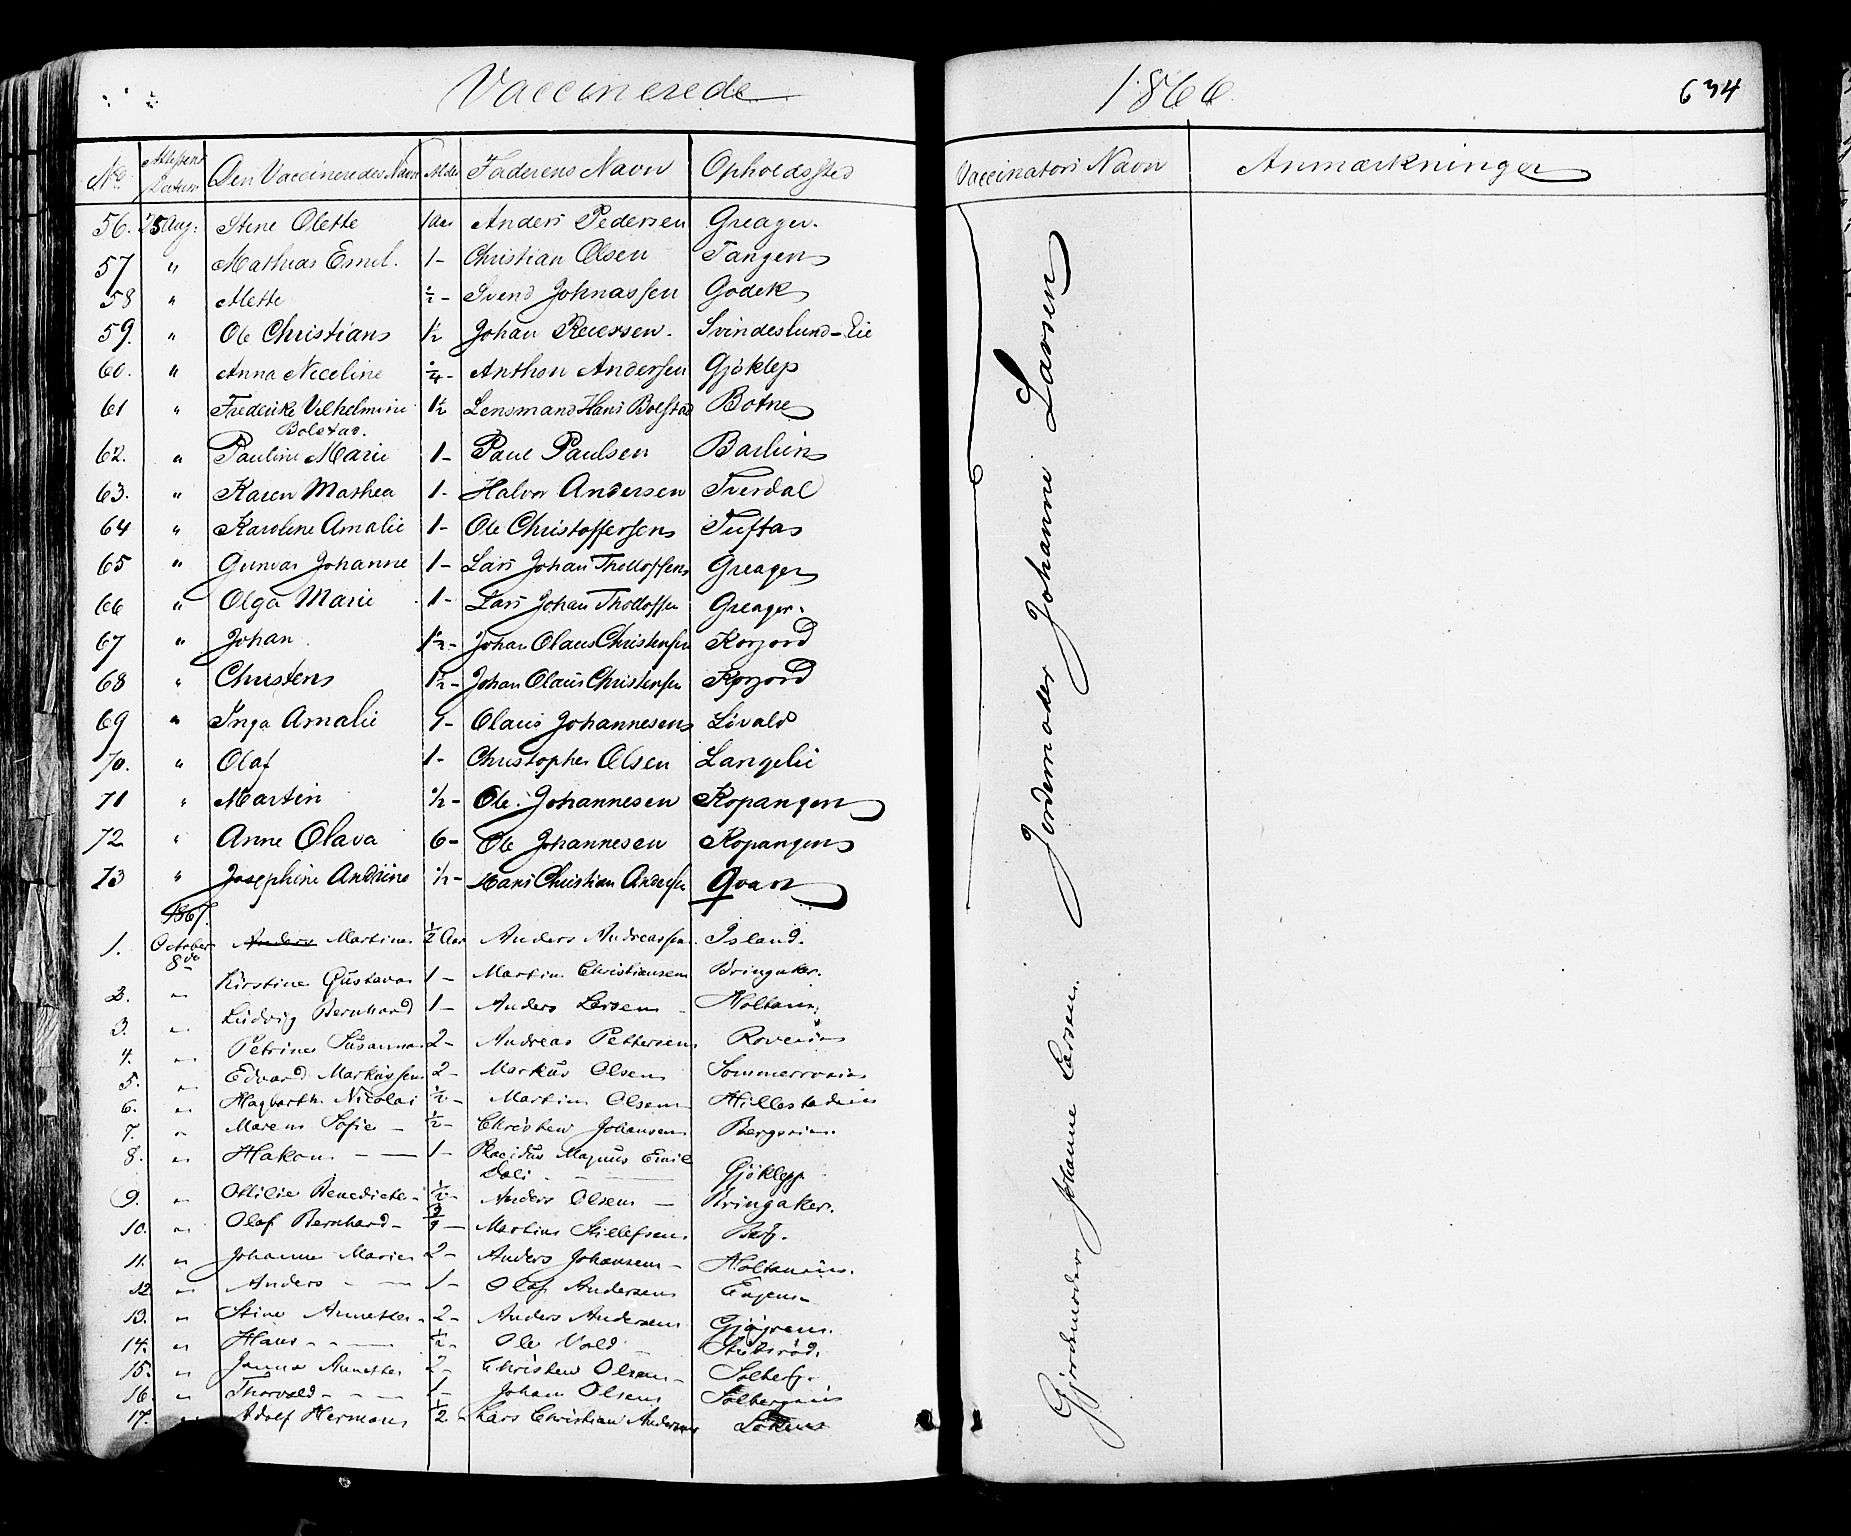 Vaccinerede 1866 634
No. Attestens Datum Den Vaccineredes Navn Alder Faderens Navn Opholdssted Vaccinators Navn Anmærkninger
56. 25 Aug: Stine Olette 1 Aar Anders Pedersen Greager.
57 " Mathias Emil. 1- Christian Olsen Tangen
58 " Mette ½- Svend Johnassen Godek
59. " Ole Christian 1½ Johan Reiersen. Svindeslund-Eie
60. " Anna Niceline ¾- Anthon Andersen Gjøklep
61 " Frederike Vilhelmine 1½ Lensmand Hans Bolstad Botne
Bolstad.
62. " Pauline Marie 1- Paul Paulsen Barlien
63. " Karen Mathea 1- Halvor Andersen Tverdal
64 " Karoline Amalie 1- Ole Christoffersen Tufta
65 " Gunvar Johanne 1- Lars Johan Greager
66 " Olga Marie 1- Lars Johan Greager.
67 " Johan 1½- Johan Olaus Christensen Korjord
68 " Christen 1½- Johan Olaus Christensen Korjord
69 " Inga Amalie 1- Olaus Johannesen Løvald
70. " Olaf 1- Christopher Olsen Langelie
71 " Martin ½- Ole Johannesen Kopangen
72. " Anne Olava 6- Ole Johannesen Kopangen
73 " Josephine Andrine ½- Hans Christian Andersen Qvan
1867.
1. October 8de Anders Martine ½ Aar Anders Andreassen. Island.
2. " Kirstine Gustava 1- Martin Christiansen Bringaker.
3. " Ludvig Bernhard 1- Anders Larsen
4. " Petrine Susanna 2- Andreas Pettersen
5. " Edvard Markussen 2- Markus Olsen
6. " Hagbarth Nicolai ½- Martin Olsen
7. " Maren Sofie - ½- Christen Johansen
8. " Hakon - - 1- Placidus Magnus Emil
Doli - - Gjøklepp
9. " Ottilie Benedicte - ½- Anders Olsen - Bringaker.
10. " Olaf Bernhard - Martin Berg.
11. " Johanne Marie 2- Anders Johansen -
12 " Anders - - 1- Olaf Andersen
13. " Stine Annette. 2- Anders Andersen
14. " Hans - - ½- Ole Vold -
15. " Annette 2- Christen Olsen - Solberg.
16. " Thorvald - - 1- Johan Olsen
17. Adolf Herman ½- Lars Christian Andersen
Jordemoder Johanne Larsen
Gjordemoder Johanne Larsen.